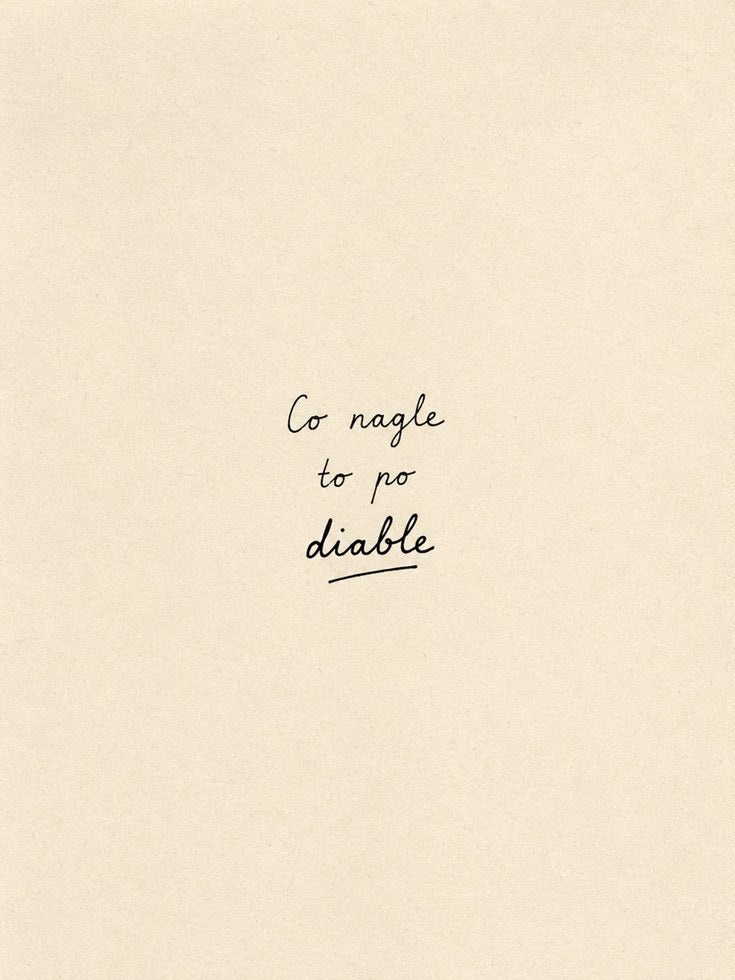 Co nagle
to po
diable